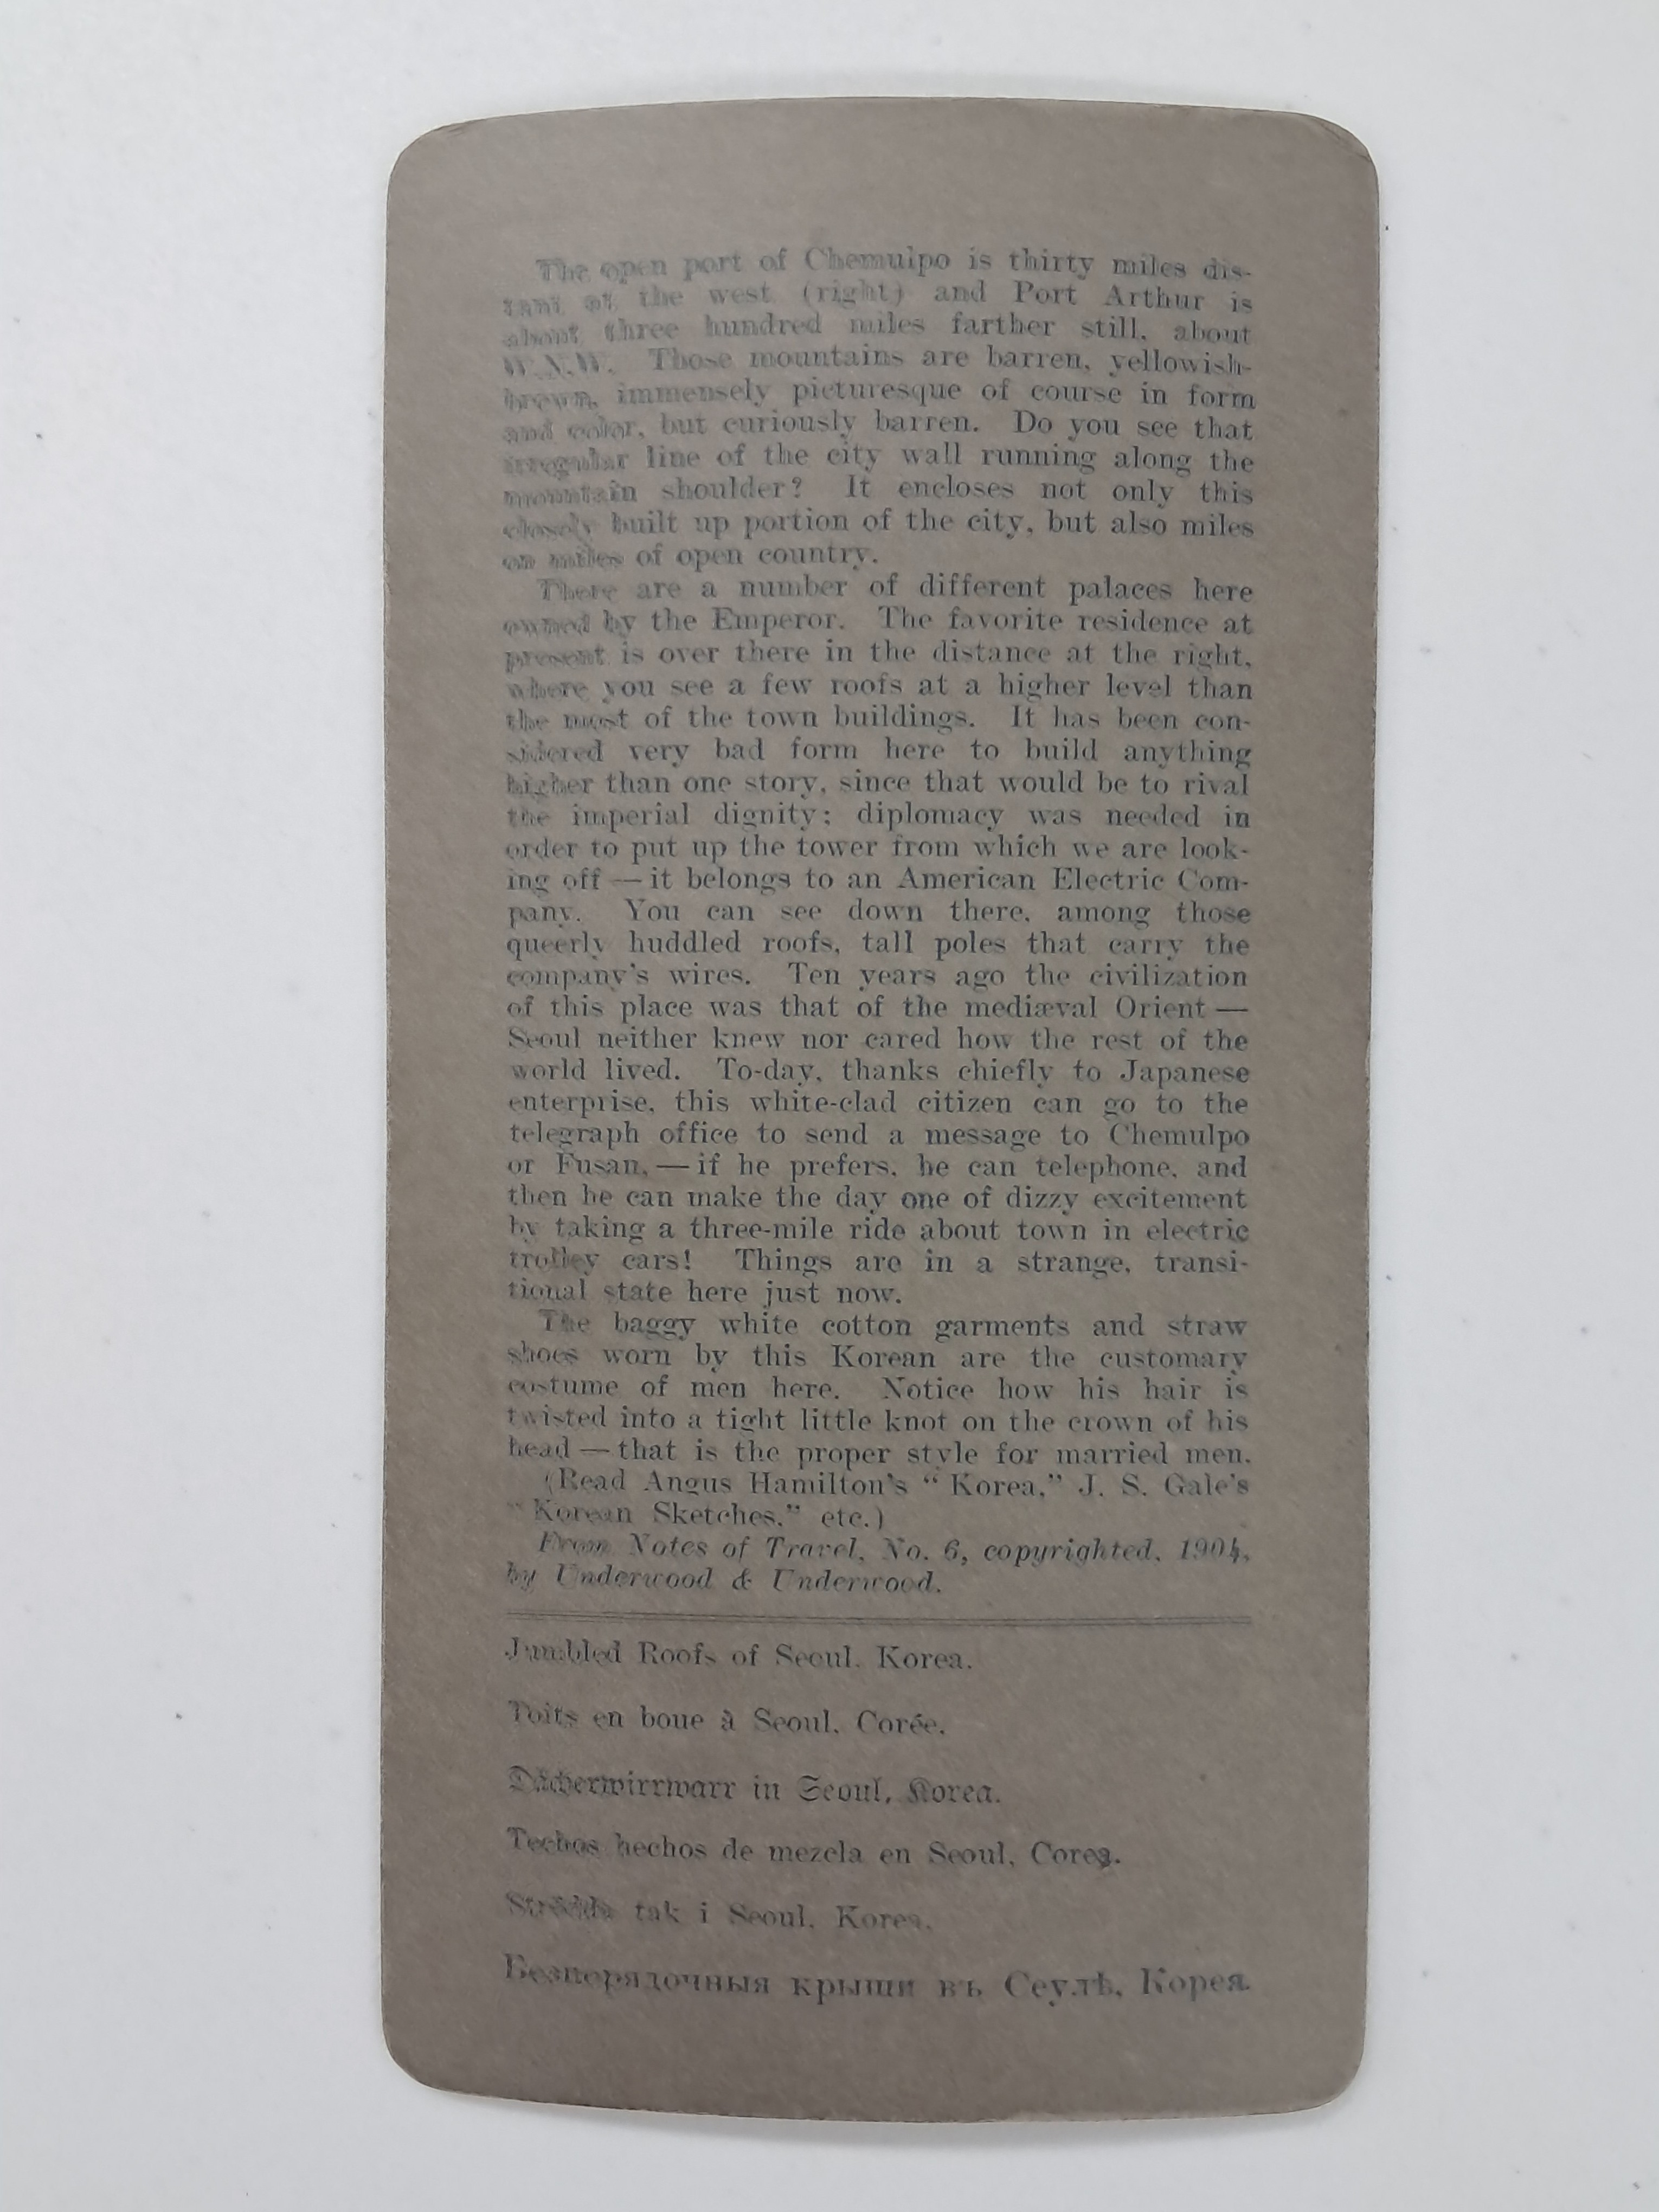 The open port of Chemulpo is thirty miles dis-
tant at the west (right) and Port Arthur is
about three hundred miles farther still, about
W.N.W. Those mountains are barren, yellowish-
brown, immensely picturesque of course in form
and color, but curiously barren. Do you see that
irregular line of the city wall running along the
mountain shoulder? It encloses not only this
closely built up portion of the city, but also miles
on miles of open country.
There are a number of different palaces here
owned by the Emperor. The favorite residence at
present is over there in the distance at the right,
where you see a few roofs at a higher level than
the most of the town buildings. It has been con-
sidered very bad form here to build anything
higher than one story, since that would be to rival
the imperial dignity; diplomacy was needed in
order to put up the tower from which we are look-
ing off — it belongs to an American Electric Com-
pany. You can see down there, among those
queerly huddled roofs, tall poles that carry the
company's wires. Ten years ago the civilization
of this place was that of the mediæval Orient —
Seoul neither knew nor cared how the rest of the
world lived. To-day, thanks chiefly to Japanese
enterprise, this white-clad citizen can go to the
telegraph office to send a message to Chemulpo
or Fusan, — if he prefers, he can telephone, and
then he can make the day one of dizzy excitement
by taking a three-mile ride about town in electric
trolley cars! Things are in a strange, transi-
tional state here just now.
The baggy white cotton garments and straw
shoes worn by this Korean are the customary
costume of men here. Notice how his hair is
twisted into a tight little knot on the crown of his
head — that is the proper style for married men.
(Read Angus Hamilton's "Korea," J. S. Gale's
"Korean Sketches," etc.)
From Notes of Travel, No. 6, copyrighted, 1904,
by Underwood & Underwood.
Jumbled Roofs of Seoul, Korea.
Toits en boue à Seoul, Corée.
Dächerwirrwarr in Seoul, Korea.
Techos hechos de mezcla en Seoul, Corea.
Strödda tak i Seoul, Korea.
Безпорядочныя крыши въ Сеулѣ, Корея.